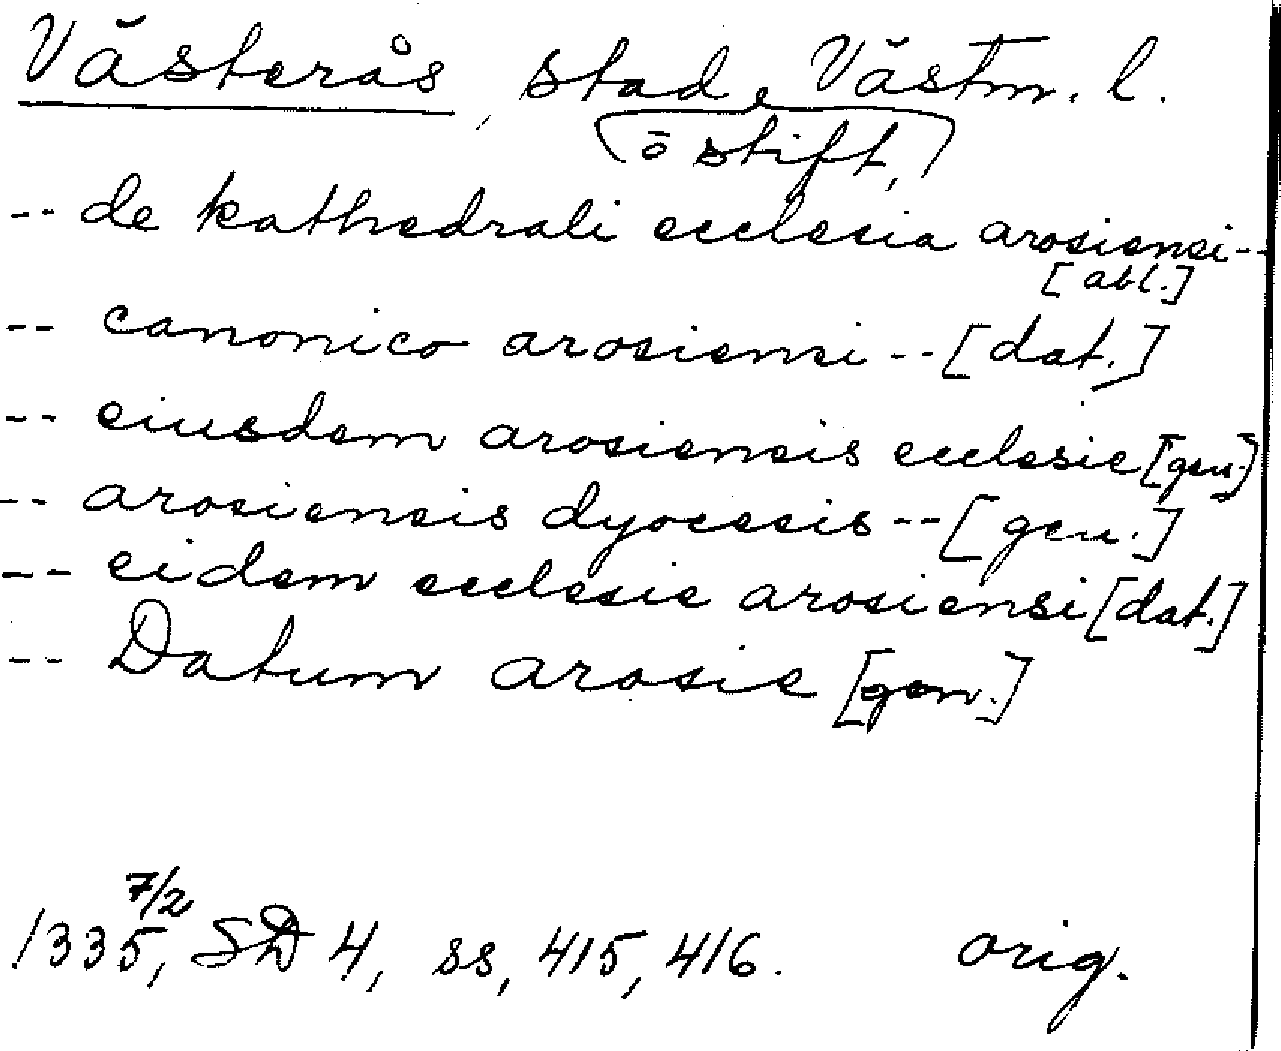 Västerås, stad, Västm. l.
(o stift,)
-- de kathedrali ecclesia arosiensi --
[abl.]
-- canonico arosiensi -- [dat.]
-- eiusdem arosiensis ecclesie [gen.]
-- arosiensis dyocesis -- [gen.]
-- eidem ecclesie arosiensi [dat.]
-- Datum arosie [gen.]
7/2
1335, SD 4, ss, 415, 416. orig.